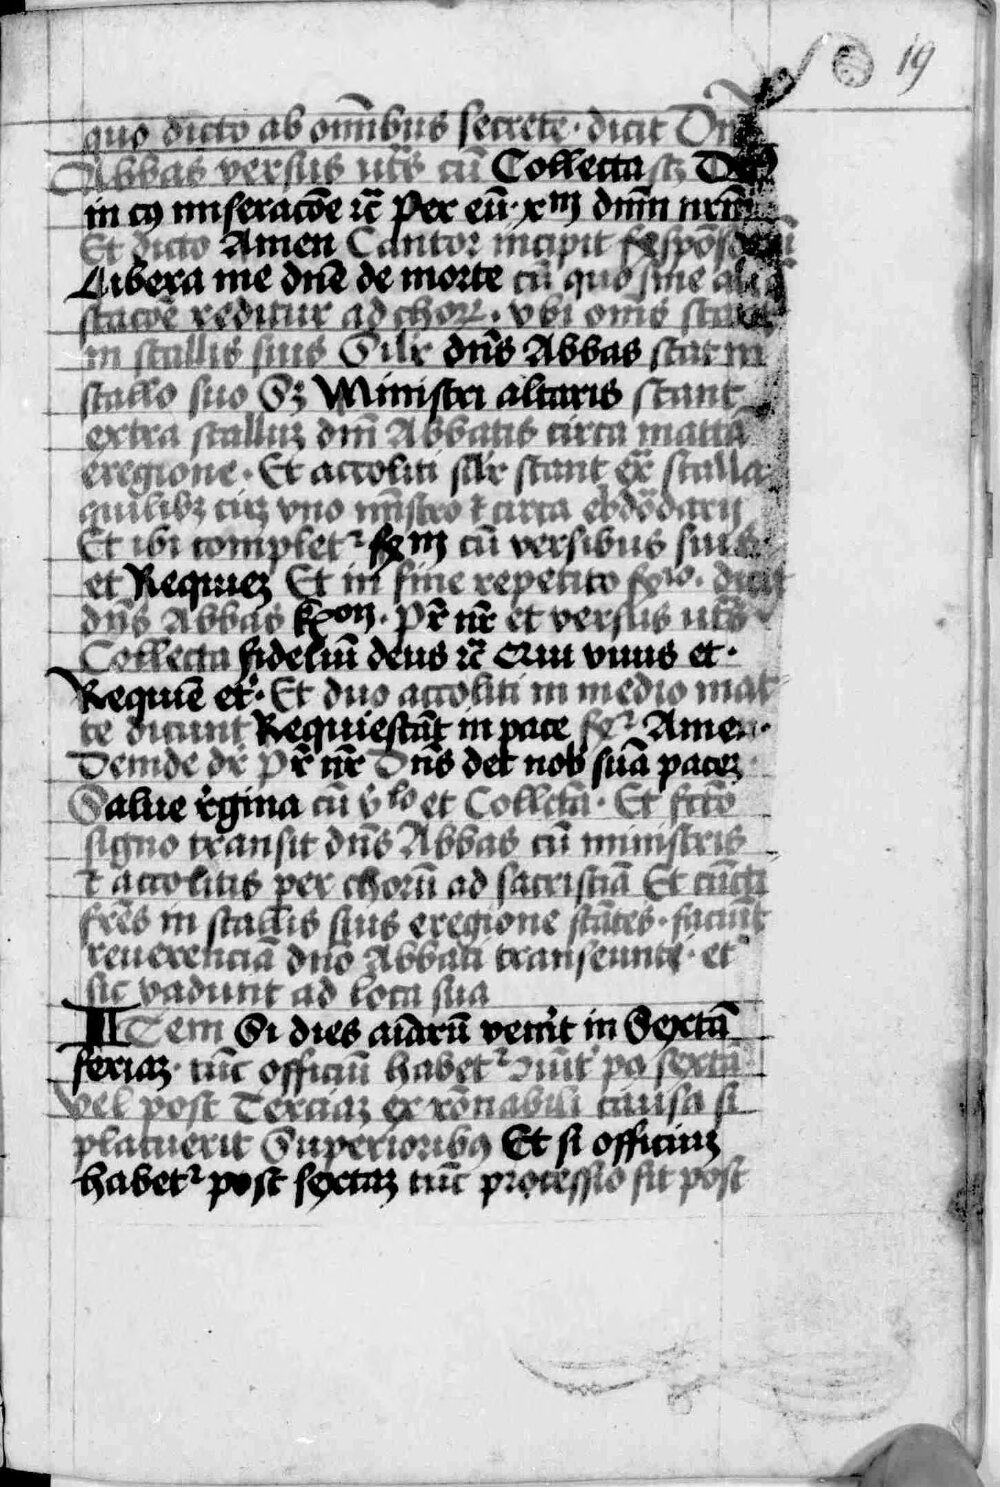 19
quo dicto ab om̄ibus secrete · dicit Dn̄s
Abbas versus ut̄s cū Collecta sꝫ Deꝰ
in cꝰ miseracōe ꝛc̄ Per eū · xp̄m dn̄m nr̄m
Et dicto Amen Cantor incipit Respōsoriū
Libera me dn̄e de morte cū quo sine aliq̄
stacōe reditur ad choꝝ · vbi om̄s stant
in stallis suis Silr̄ dn̄s Abbas stat in
stallo suo Sꝫ Ministri altaris stant
extra stalluꝫ dn̄i Abbatis circa mattā
eregione · Et accoliti silr̄ stant ex̄ stalla
quilibꝫ cuꝫ vno mīstro ⁊ circa ebdōdarij
Et ibi complet᷑ Rm̄ cū versibus suis
et Requieꝫ Et in fine repetito Rͦ · dicit
dn̄s Abbas k̄yꝛon · Pr̄ nr̄ et versus ut̄s
Collecta fideliū deus ꝛc̄ Qui viuis et ·
Requiē et̄ · Et duo accoliti in medio mat
te dicunt Requiescāt in pace R᷑ Amen ·
Deinde dr̄ Pr̄ nr̄ Dn̄s det nob̄ suā paceꝫ
Salue r̄gina cū v̄lo et Collcā · Et fcō
signo transit dn̄s Abbas cū ministris
⁊ accolitis per chorū ad sacristiā Et cūcti
frēs in stallis suis eregione stātes · faciūt
reuerenciā dn̄o Abbati transeunti · et
sic vadunt ad loca sua
ITem Si dies aīarū ven̄it in Sextā
feriaꝫ · tūc officiū habet᷑ po sextā
vel post Terciaꝫ ex rōnabili causa si
placuerit Superioribꝰ Et si officiuꝫ
habet᷑ post sextaꝫ tūc processio fit post